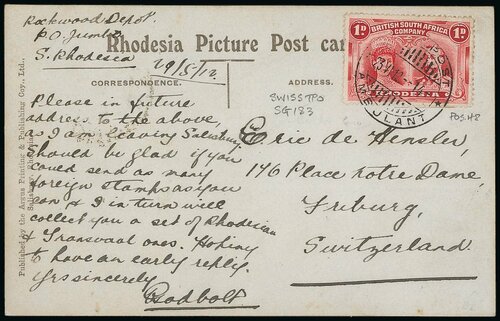 Rockwood Depot.
P.O. Jumbo
S. Rhodesia
29/5/12.
Rhodesia Picture Post car
CORRESPONDENCE.
ADDRESS.
Please in future
address to the above,
as I am leaving Salisbury
Should be glad if you
could send as many
foreign stamps as you
can & I in turn will
collect you a set of Rhodesian
& Transvaal ones. Hoping
to have an early reply.
Yrs sincerely
Rodbolt
SWISS TPO
SG 183
Eric de Hensler,
146 Place Notre Dame,
Friburg,
Switzerland.
1D
BRITISH SOUTH AFRICA
COMPANY
1D
POST
AMBULANT
POS H8
Published by the Argus Printing & Publishing Coy., Ltd.,
Salisbury